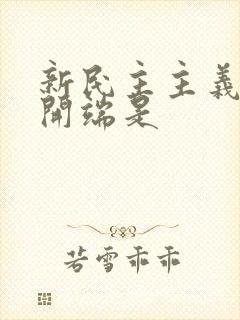 新民主主義
開端是
若雪乖乖